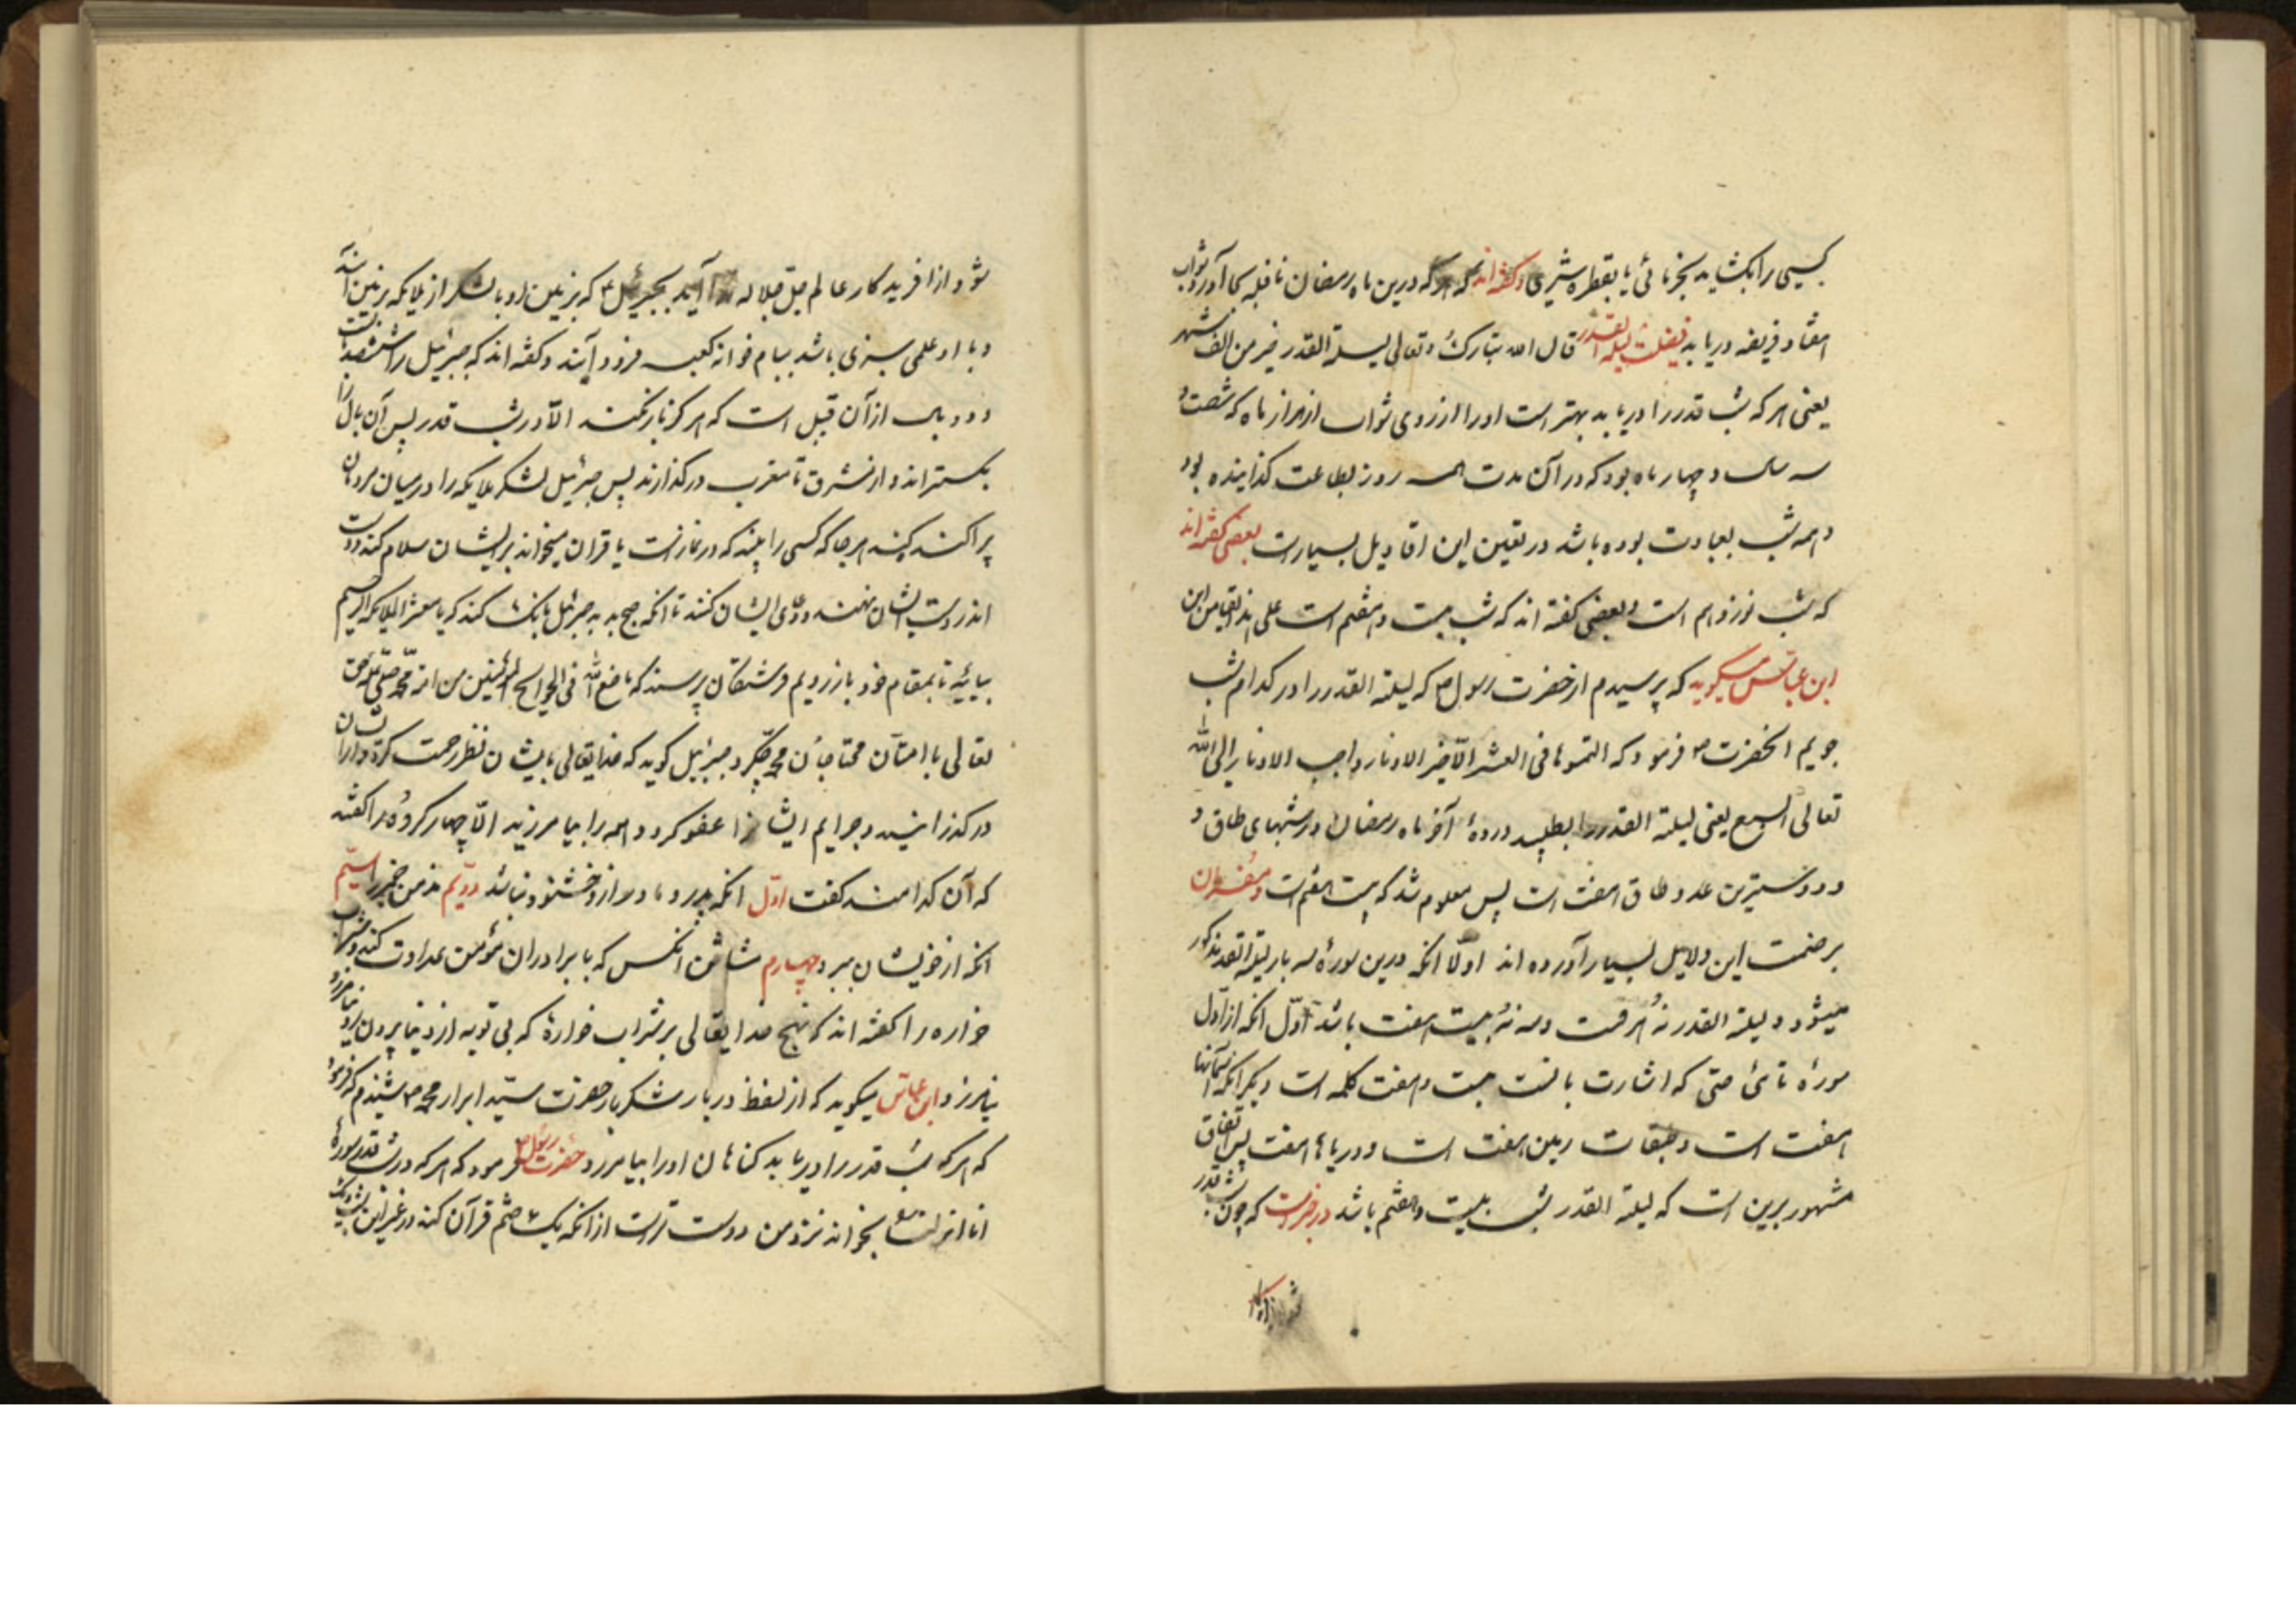 کسی را بکشاید بخرمائی یا بقطره شیری و کفته اند که هرکه درین ماه رمضان نافله بجا آورد ثواب
هفتاد فریضه دریابد فضیلت لیلة القدر قال الله تبارک و تعالی لیلة القدر خیر من الف شهر
یعنی هر که شب قدر را دریابد بهتر است او را از روی ثواب از هزار ماه که هشتاد و
سه سال و چهار ماه بود که در آن مدت همه روز بطاعت کذرانیده بود
و همه شب بعبادت بوده باشد در تعین این اقاویل بسیار است بعضی کفته اند
که شب نوزدهم است و بعضی کفته اند که شب بیست و هفتم است علی هذا القیاس
ابن عباس میکوید که پرسیدم از حضرت رسول ص که لیلة القدر را در کدام شب
جویم انحضرت ص فرمود که التمسوها فی العشر الاخیر الاوتار و احب الاوتار الی الله
تعالی السبع یعنی لیلة القدر را بطلبید در دههٔ آخر ماه رمضان در شبهای طاق و
و دوستترین عدد طاق هفت است پس معلوم شد که بیست هفتم است و مفسران
بر صحت این دلایل بسیار آورده اند اولا انکه درین سورة سه بار لیلة القدر مذکور
میشود و لیلة القدر نه حرفست و سه نه بیست هفت باشد اول انکه از اول
سورة تا هی حتی که اشارت بانست بیست و هفت کلمه است دیکر انکه آسمانها
هفت است و طبقات زمین هفت است و دریاها هفت پس اتفاق
مشهور برین است که لیلة القدر شب بیست و هفتم باشد در خبر است که چون شب قدر
شود از آفریدکار
شود از افریدکار عالم جل جلاله ندا آید بجبرئیل ع که بزمین رو با لشکر از ملایکه بزمین آیند
و با او علمی سبزی باشد ببام خوانه کعبه فرود آیند و کفته اند که جبرئیل را ششصد بال است
و دو بال از آن قبیل است که هرکز باز نکند الا در شب قدر پس آن بال را
بکستراند و از مشرق تا مغرب درکذارند پس جبرئیل لشکر ملایکه را در میان مردمان
پراکنده کند هر جا که کسی را بیند که در نماز است یا قران میخواند بر ایشان سلام کنند و دست
اندر دست ایشان نهند و دعای ایشان کنند تا انکه صبح بدمد جبرئیل بانک کند که یا معشر الملایکه الرحیم
بیایید تا بمقام خود باز رویم فرشتکان پرسند که ما صنع الله فی الحوایج المؤمنین من امة محمد صلی علیه حق
تعالی با امتان محتاجان محمد چکرد جبرئیل کوید که خدایتعالی بایشان نظر رحمت کرد و از ایشان
درکذرانید و جرایم ایشانرا عفو کرد و همه را بیامرزید الا چهار کروه را کفتند
که آن کدامند کفت اول انکه پدر و مادر از و خشنود نباشد دویم مدمن خمر را سیم
انکه از خویشان ببرد و چهارم مشاحن انکس که با برادران مؤمن عداوت کند و شراب
خواره را کفته اند که هیچ خدایتعالی بر شراب خوارهٔ که بی توبه از دنیا بیرون رود نیامرزد
نیامرزد و ابن عباس میکوید که از لفظ دربار شکر بار حضرت سید ابرار محمد ص شنیدم که فرمود
که هر که شب قدر را دریابد کناهان او را بیامرزد حضرت رسول ص فرمود که هر که در شب قدر سورهٔ
انا انزلناه بخواند نزد من دوست تر است از انکه یک ختم قرآن کند در غیر این شب